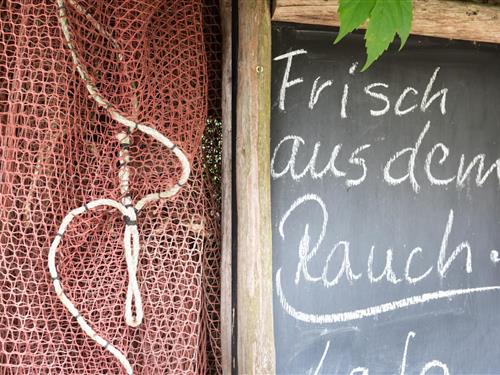 Frisch
aus dem
Rauch.